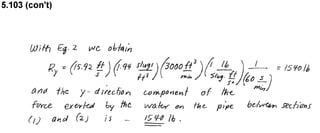 5.103 (con't)
With Eq. 2 we obtain
Ry = (15.92 ft/s) (1.94 slugs/ft³) (3000 ft³/min) (1 lb/(slug. ft/s²)) 1/(60 s/min) = 1540 lb
and the y-direction component of the
force exerted by the water on the pipe between sections
(1) and (2) is - 1540 lb.